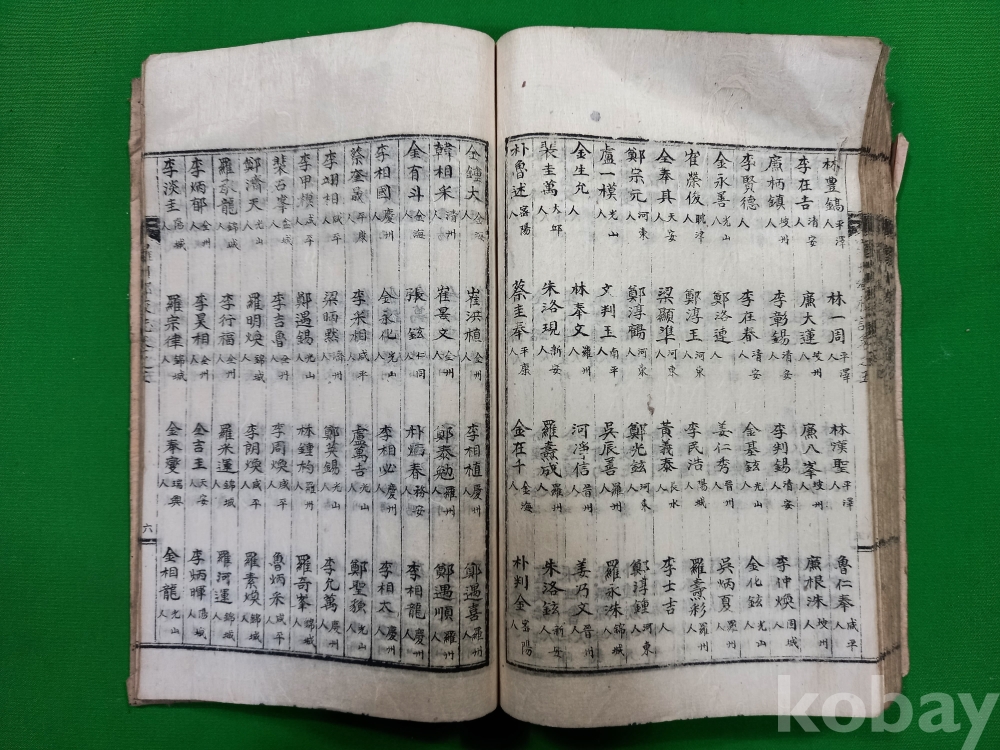 林豊鎬 平澤人 林一周 平澤人 林漢聖 平澤人 魯仁奉 咸平人
李在吉 清安人 廉大蓮 坡州人 廉八峯 坡州人 廉根洙 坡州人
廉柄鎮 坡州人 李彰錫 清安人 李判錫 清安人 李仲煥 固城人
李賢德 人 李在春 清安人 金基鉉 光山人 金化鉉 光山人
金永善 光山人 鄭洛連 河東人 姜仁秀 晉州人 吳炳夏 羅州人
崔榮俊 人 鄭淳王 河東人 李民浩 陽城人 羅燾彩 羅州人
金奉具 天安人 梁顯準 人 黃義泰 長水人 李士吉 人
鄭宗元 河東人 鄭淳鶴 河東人 鄭光鉉 河東人 鄭淳鍾 河東人
盧一模 光山人 文判王 南平人 吳辰善 羅州人 羅永洙 錦城人
金生允 人 林奉文 羅州人 河淨信 晉州人 姜乃文 晉州人
裴圭萬 大邱人 朱洛現 新安人 羅燾成 羅州人 朱洛鉉 新安人
朴魯述 密陽人 蔡圭奉 平康人 金在千 金海人 朴判金 密陽人
金鍾大 金海人 崔洪植 全州人 李相植 慶州人 鄭遇喜 羅州人
韓相采 清州人 崔曇文 全州人 鄭泰勉 羅州人 鄭遇順 羅州人
金有斗 金海人 張鉉 仁同人 朴春 務安人 李相龍 慶州人
李相國 慶州人 金永化 光山人 李相必 慶州人 李相太 慶州人
蔡奎晟 平康人 李采相 咸平人 盧萬吉 光山人 鄭聖 光山人
李翊相 咸平人 梁晒黙 濟州人 鄭英錫 光山人 李允萬 慶州人
李甲模 咸平人 鄭遇錫 光山人 林鍾枸 羅州人 羅奇峯 錦城人
裴石峯 盆城人 李吉魯 全州人 李周煥 咸平人 魯炳采 咸平人
鄭濟天 光山人 羅明煥 錦城人 李朗煥 咸平人 羅素煥 錦城人
羅龍 錦城人 李行福 全州人 羅米運 錦城人 羅河運 錦城人
李炳郁 全州人 李昊相 全州人 金吉圭 天安人 李炳暉 陽城人
李淡圭 陽城人 羅宗律 錦城人 金奉愛 瑞興人 金相龍 光山人
六
kobay